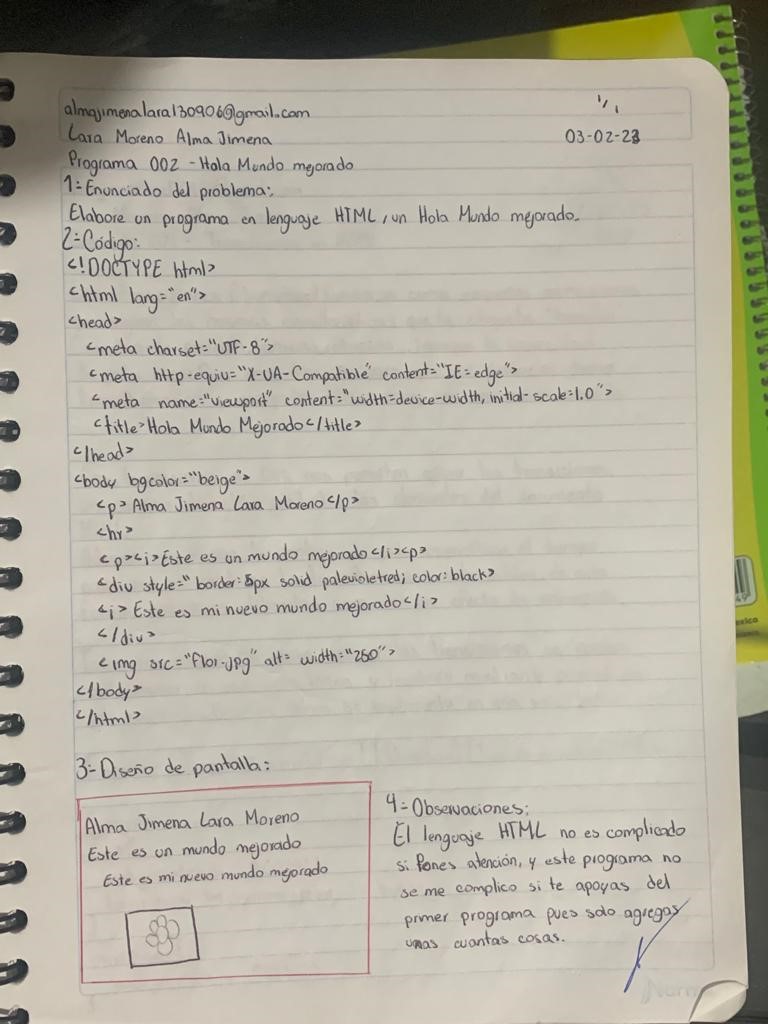 almajimenalara130906@gmail.com
Lara Moreno Alma Jimena
03-02-23
Programa 002 - Hola Mundo mejorado
1-Enunciado del problema:
Elabore un programa en lenguaje HTML, un Hola Mundo mejorado.
2-Código:
<!DOCTYPE html>
<html lang="en">
<head>
<meta charset="UTF-8">
<meta http-equiv="X-UA-Compatible" content="IE=edge">
<meta name="viewport" content="width=device-width, initial-scale=1.0">
<title>Hola Mundo Mejorado</title>
</head>
<body bgcolor="beige">
<p>Alma Jimena Lara Moreno</p>
<hr>
<p><i>Este es un mundo mejorado</i><p>
<div style="border:5px solid palevioletred; color:black>
<i>Este es mi nuevo mundo mejorado</i>
</div>
<img src="flor.jpg" alt= width="250">
</body>
</html>
3-Diseño de pantalla:
Alma Jimena Lara Moreno
Este es un mundo mejorado
Este es mi nuevo mundo mejorado
4-Observaciones:
El lenguaje HTML no es complicado
si Pones atención, y este programa no
se me complico si te apoyas del
primer programa pues solo agregas
unas cuantas cosas.